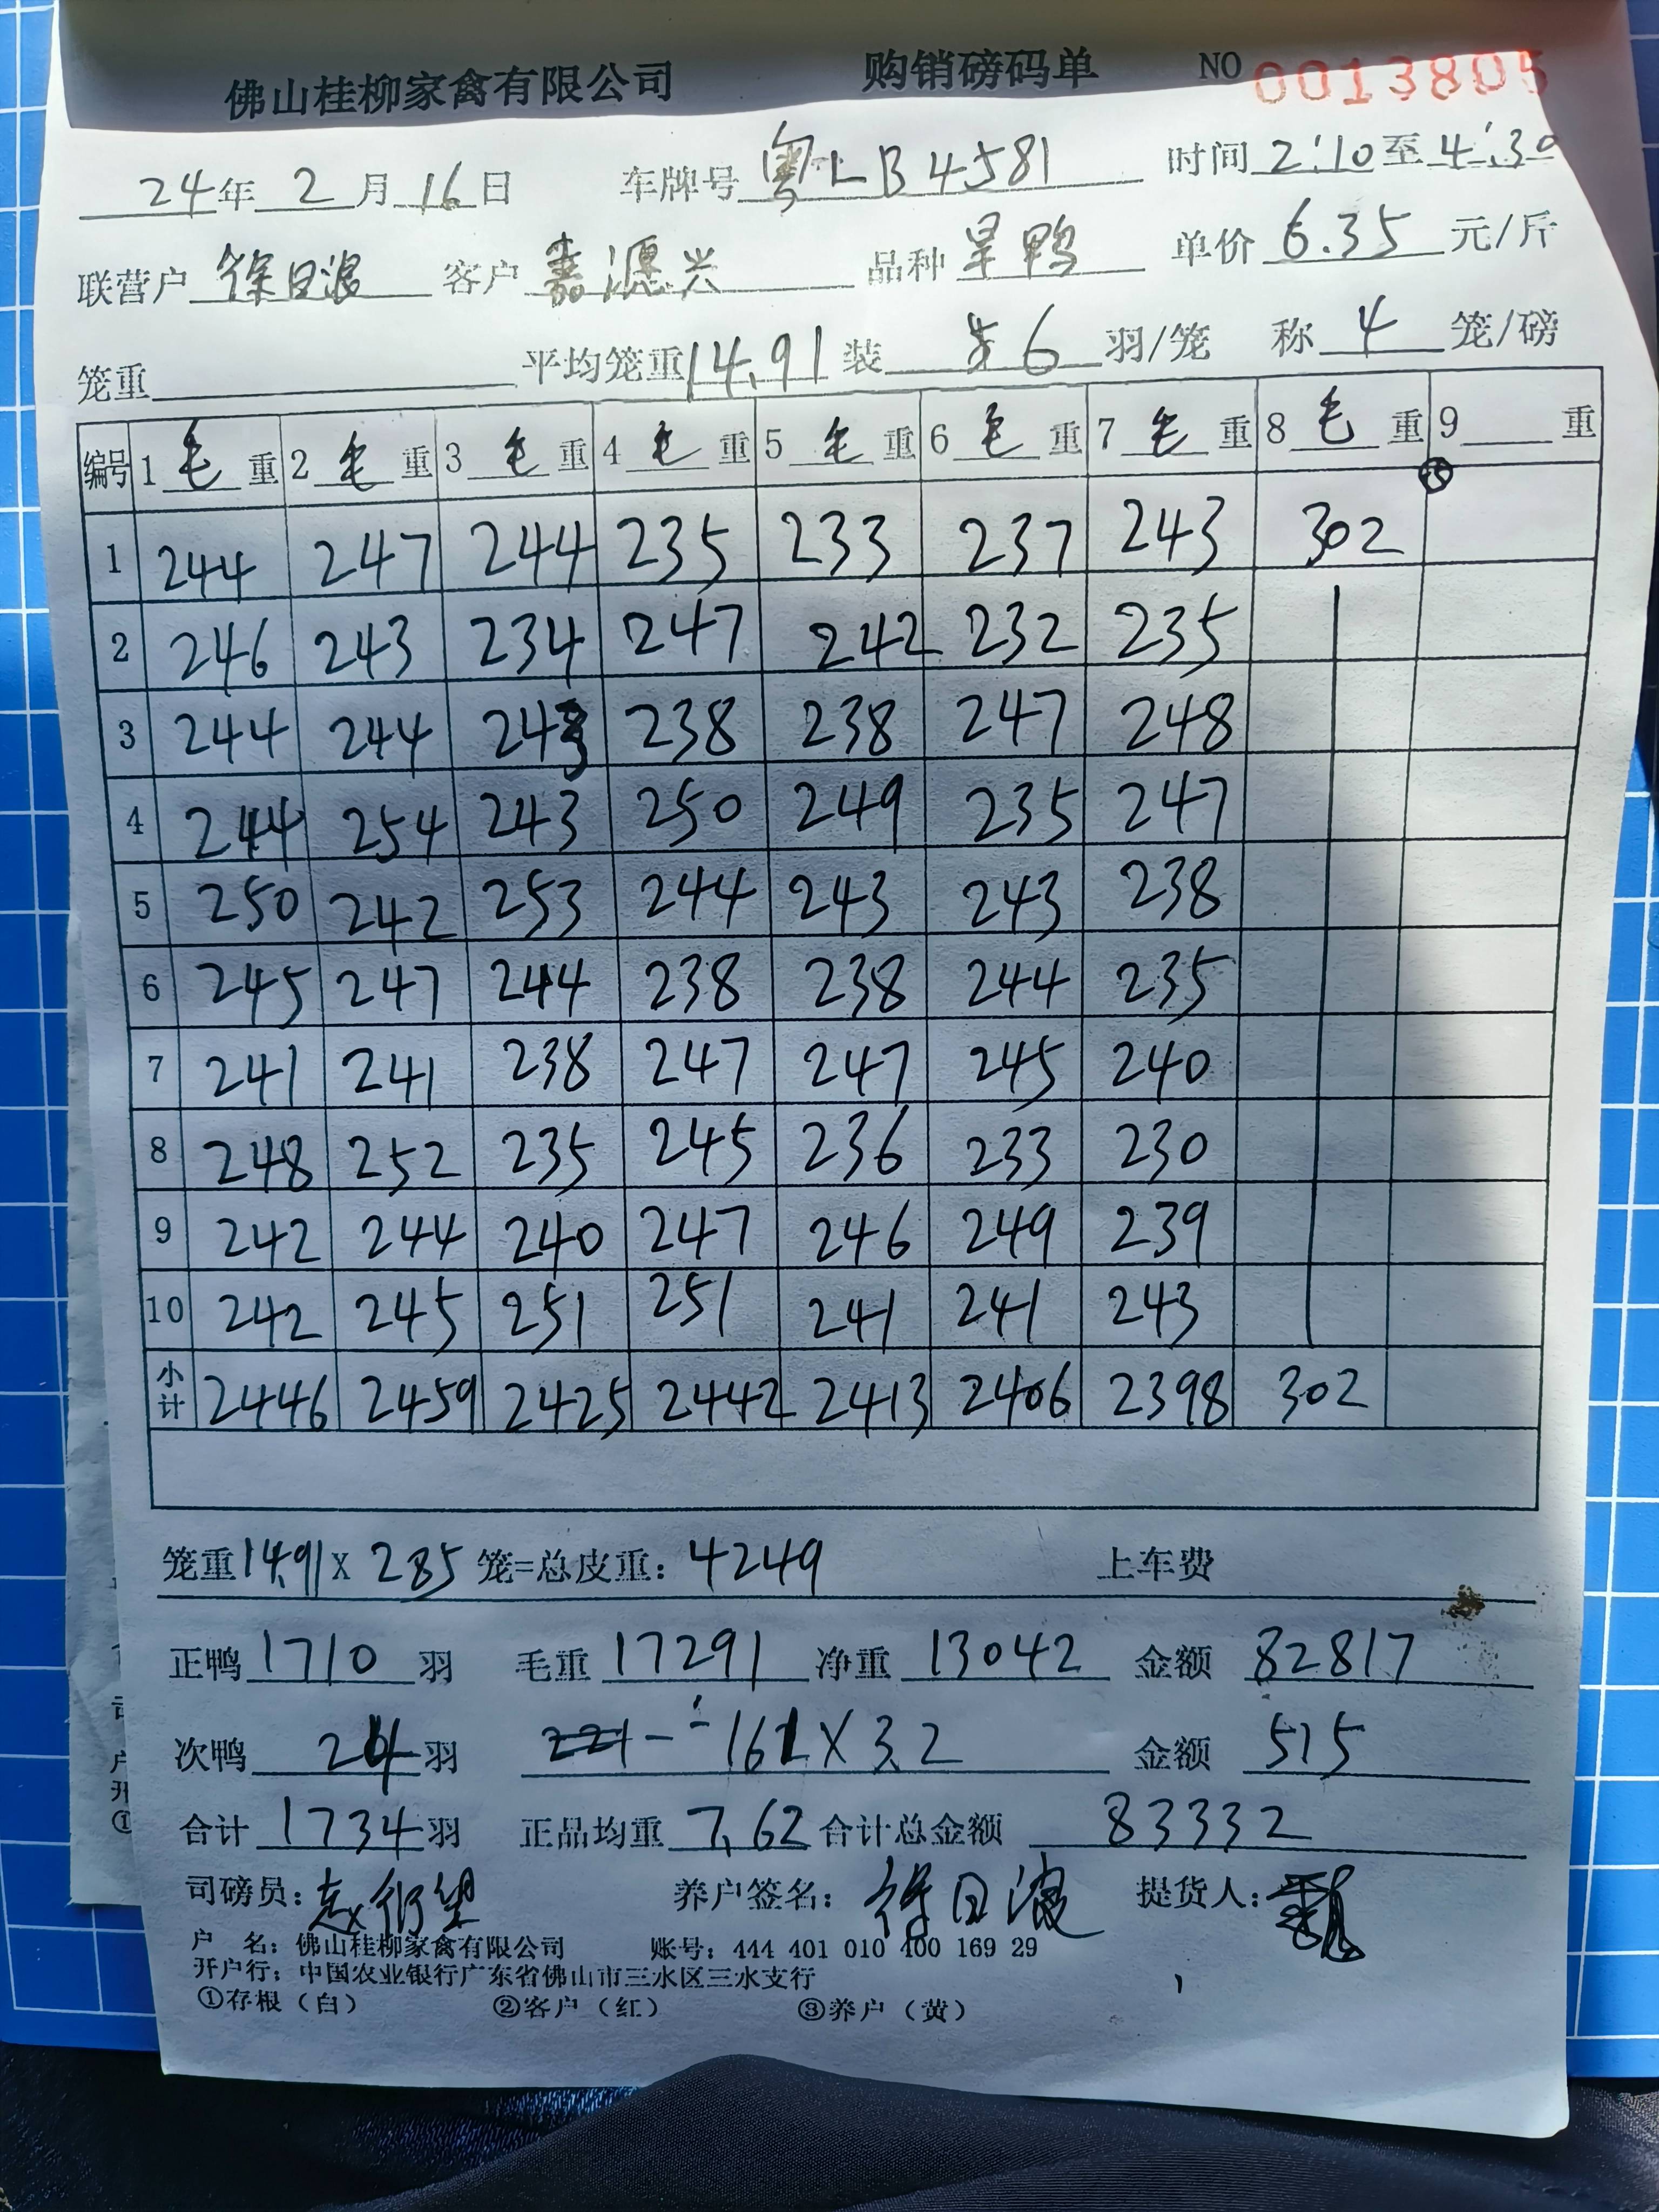 佛山桂柳家禽有限公司 购销磅码单 NO 0013805
24年2月16日 车牌号粤LB4581 时间2:10至4:30
联营户徐日浪 客户嘉源兴 品种旱鸭 单价6.35元/斤
笼重 平均笼重14.91装6羽/笼 称4笼/磅
编号 1毛重 2毛重 3毛重 4毛重 5毛重 6毛重 7毛重 8毛重 9重
1 244 247 244 235 233 237 243 302
2 246 243 234 247 242 232 235
3 244 244 243 238 238 247 248
4 244 254 243 250 249 235 247
5 250 242 253 244 243 243 238
6 245 247 244 238 238 244 235
7 241 241 238 247 247 245 240
8 248 252 235 245 236 233 230
9 242 244 240 247 246 249 239
10 242 245 251 251 241 241 243
小计 2446 2459 2425 2442 2413 2406 2398 302
笼重14.91X285笼=总皮重:4249 上车费
正鸭1710羽 毛重17291净重13042 金额82817
次鸭24羽 161X3.2 金额515
合计1734羽 正品均重7.62合计总金额83332
司磅员: 养户签名:徐日浪 提货人:
户 名:佛山桂柳家禽有限公司 账号:444 401 010 400 169 29
开户行:中国农业银行广东省佛山市三水区三水支行
①存根(白) ②客户(红) ③养户(黄)